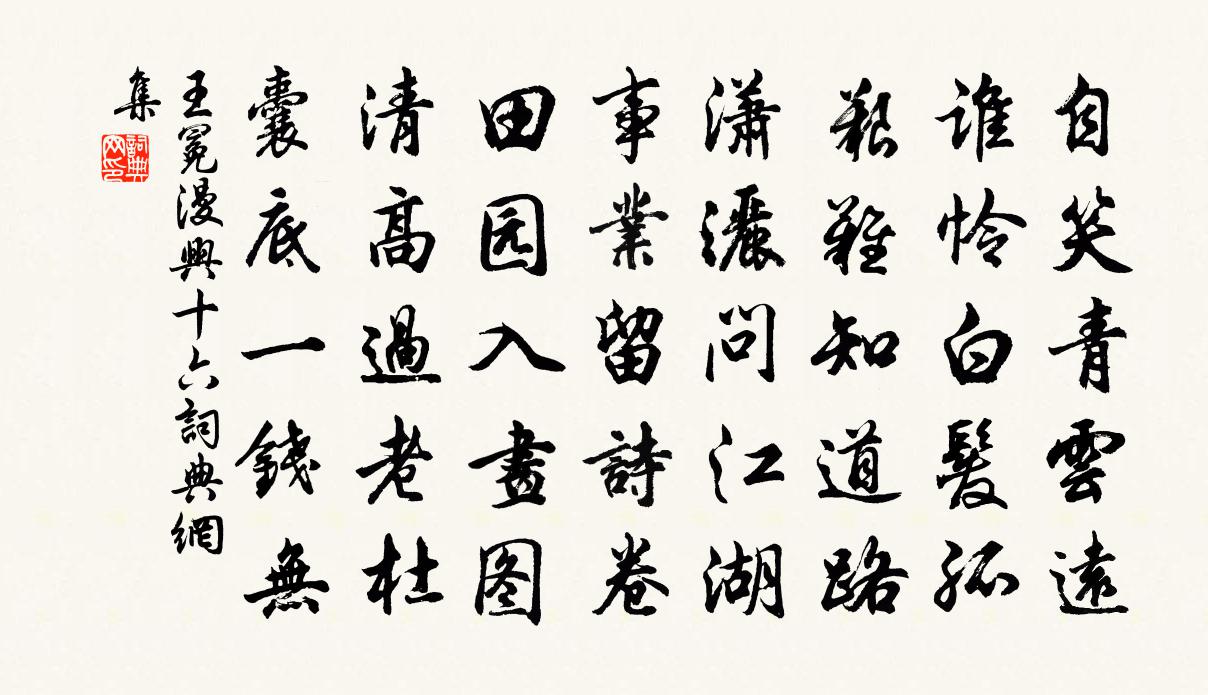 自笑青雲遠
谁怜白髮孤
艱難知道路
瀟灑問江湖
事業留詩卷
田园入畫图
清高過老杜
囊底一錢無
王冕漫興十六詞典網
集
詞典
网印